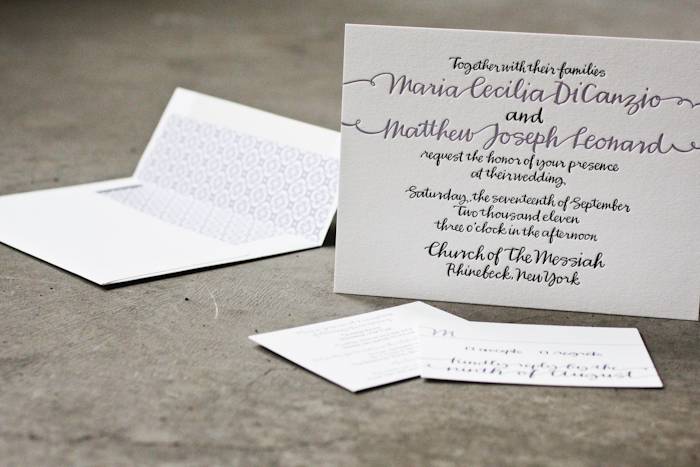 Together with their families
Maria Cecilia DiCanzio
and
Matthew Joseph Leonard
request the honor of your presence
at their wedding,
Saturday, the seventeenth of September
Two thousand eleven
three o'clock in the afternoon
Church of The Messiah
Rhinebeck, New York
M
accepts regrets
kindly reply by the
ninth of August